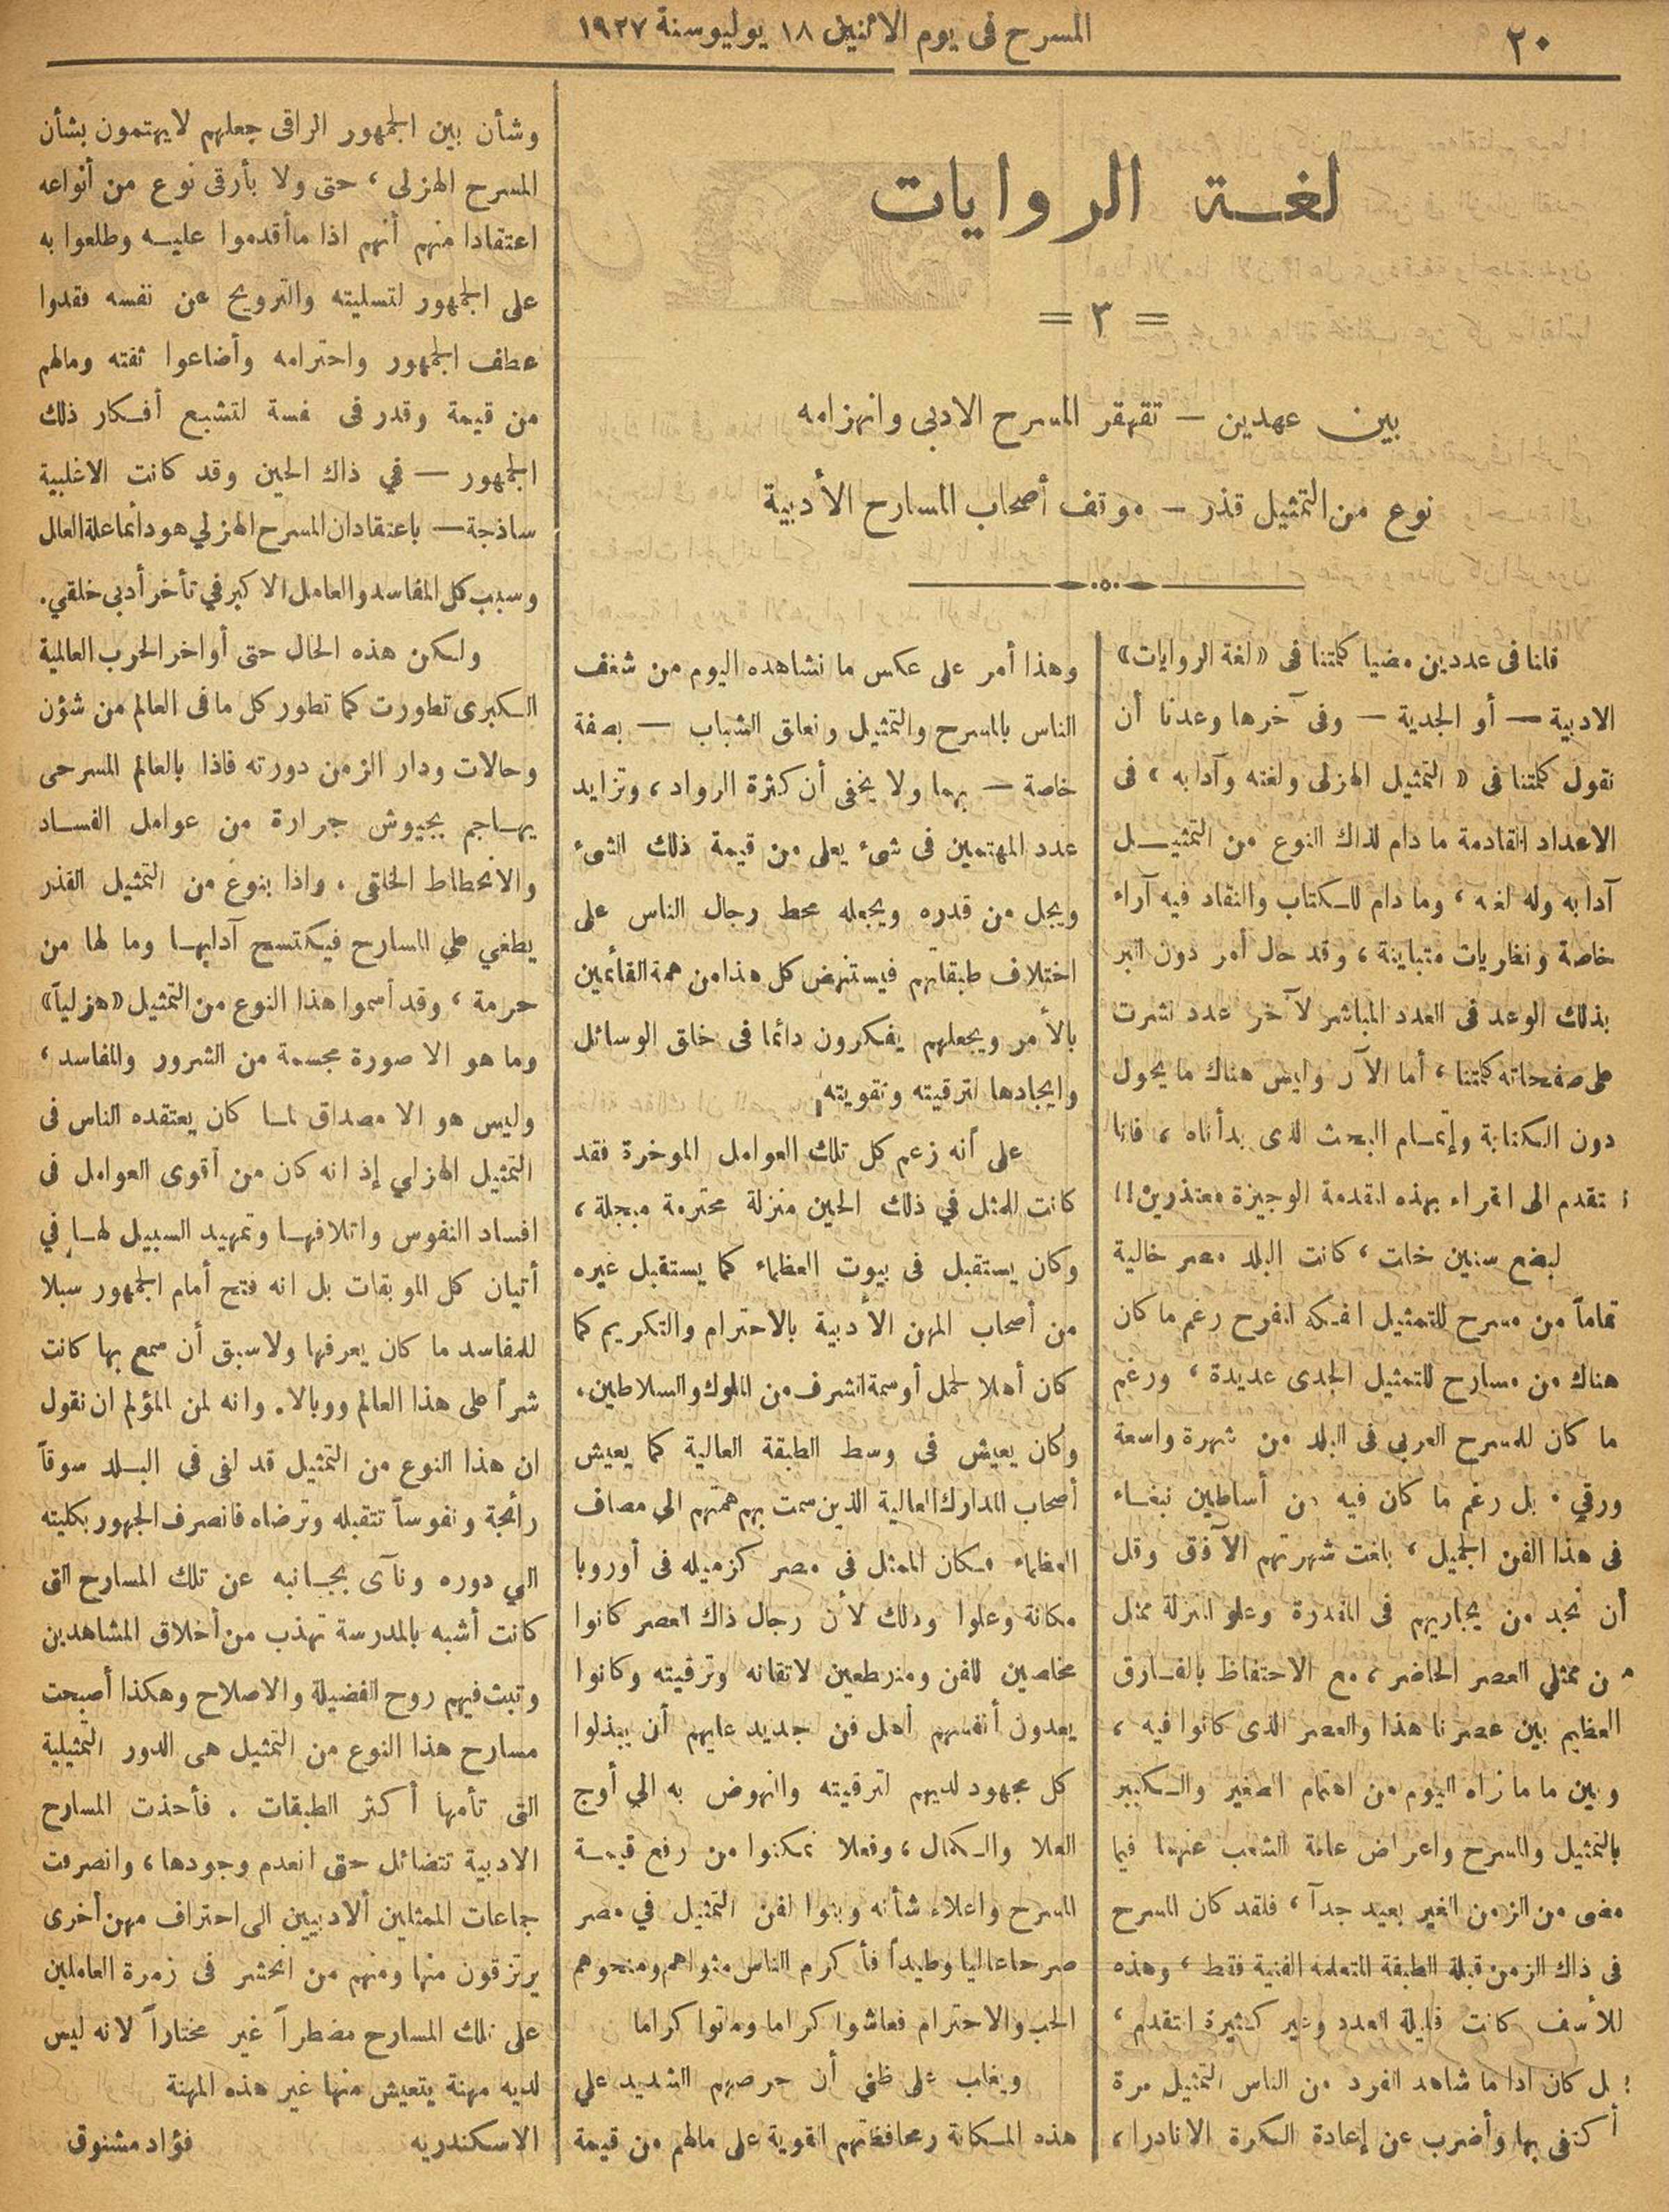 ٢٠
المسرح فى يوم الاثنين ١٨ يوليو سنة ١٩٢٧
لغة الروايات
= ٣ =
بين عهدين — تقهقر المسرح الادبى وانهزامه
نوع من التمثيل قذر — موقف أصحاب المسارح الأدبية
قلنا فى عددين مضيا كلمتنا فى «لغة الروايات»
الادبية — أو الجدية — وفى آخرها وعدنا أن
نقول كلمتنا فى « التمثيل الهزلى ولغته وآدابه ، فى
الاعداد القادمة ما دام لذاك النوع من التمثيل
آدابه وله لغه ، وما دام للكتاب والنقاد فيه آراء
خاصة ونظريات متباينة ، وقد حال أمر دون البر
بذلك الوعد فى العدد المباشر لآخر عدد نشرت
على صفحاته كلمتنا ، أما الآن وليس هناك ما يحول
دون الكتابة وإتمام البحث الذى بدأناه ، فانا
نتقدم الى القراء بهذه المقدمة الوجيزة معتذرين !!
لبضع سنين خلت ، كانت البلد مصر خالية
تماماً من مسرح للتمثيل الفكه المفرح رغم ما كان
هناك من مسارح للتمثيل الجدى عديدة ، ورغم
ما كان للمسرح العربي فى البلد من شهرة واسعة
ورقي . بل رغم ما كان فيه من أساطين نبغاء
فى هذا الفن الجميل ، بلغت شهرتهم الآفق وقل
أن نجد من يجاريهم فى المقدرة وعلو المنزلة ممثل
من ممثلي العصر الحاضر ، مع الاحتفاظ بالفارق
العظيم بين عصرنا هذا والعصر الذى كانوا فيه ،
وبين ما مانراه اليوم من اهتمام الصغير والكبير
بالتمثيل والمسرح واعراض عامة الشعب عنهما فيما
مضى من الزمن الغير بعيد جداً ، فلقد كان المسرح
فى ذاك الزمن قبلة الطبقة المتعلمه الفنية فقط ، وهذه
للأسف كانت قليلة العدد وغير كثيرة التقدم ،
بل كان اذا ما شاهد الفرد من الناس التمثيل مرة
أكتفى بها وأضرب عن إعادة الكرة الا نادرا ،
وهذا أمر على عكس ما نشاهده اليوم من شغف
الناس بالمسرح والتمثيل وتعلق الشباب — بصفة
خاصة — بهما ولا يخفى أن كثرة الرواد ، وتزايد
عدد المهتمين فى شىء يعلى من قيمة ذلك الشىء
ويجل من قدره ويجعله محط رجال الناس على
اختلاف طبقاتهم فيستنهض كل هذا من همة القائمين
بالأمر ويجعلهم يفكرون دائما فى خلق الوسائل
وايجادها لترقيته وتقويته
على أنه زعم كل تلك العوامل الموخرة فقد
كانت للمثل في ذلك الحين منزلة محترمة مبجلة ،
وكان يستقبل فى بيوت العظماء كما يستقبل غيره
من أصحاب المهن الأدبية بالاحترام والتكريم كما
كان أهلا لحمل أوسمة الشرف من الملوك والسلاطين .
وكان يعيش فى وسط الطبقة العالية كما يعيش
أصحاب المدارك العالية الذين سمت بهم همتهم الي مصاف
العظماء فكان الممثل فى مصر كزميله فى أوروبا
مكانة وعلوا وذلك لأن رجال ذاك العصر كانوا
مخلصين للفن ومنرطعين لاتقانه وترقيته وكانوا
يعدون أنفسهم أهل فن جديد عليهم أن يبذلوا
كل مجهود لديهم لترقيته والنهوض به الي أوج
العلا والكمال ، وفعلا تمكنوا من رفع قيمة
المسرح واعلاء شأنه وبنوا لفن التمثيل في مصر
صرحا عاليا وطيداً فأكرم الناس مثواهم ومنحوهم
الحب والاحترام فعاشوا كراما وماتوا كراما
ويغلب على ظني أن حرصهم الشديد علي
هذه المكانة ومحافظتهم القوية على مالهم من قيمة
وشأن بين الجمهور الراقى جعلهم لا يهتمون بشأن
المسرح الهزلى ، حتى ولا بأرقى نوع من أنواعه
اعتقادا منهم أنهم اذا ماأقدموا عليه وطلعوا به
على الجمهور لتسليته والترويح عن نفسه فقدوا
عطف الجمهور واحترامه وأضاعوا ثقته ومالهم
من قيمة وقدر فى نفسة لتشبع أفكار ذلك
الجمهور — في ذاك الحين وقد كانت الاغلبية
ساذجة — باعتقاد ان المسرح الهزلي هو دائما علة العلل
وسبب كل المفاسد والعامل الاكبر في تأخر أدبى خلقي .
ولكن هذه الحال حتى أواخر الحرب العالمية
الكبرى تطورت كما تطور كل ما فى العالم من شؤن
وحالات ودار الزمن دورته فاذا بالعالم المسرحى
يهاجم بجيوش جرارة من عوامل الفساد
والانحطاط الخلقى . واذا بنوع من التمثيل القذر
يطغي على المسارح فيكتسح آدابها وما لها من
حرمة ، وقد أسموا هذا النوع من التمثيل «هزلياً»
وما هو الا صورة مجسمة من الشرور والمفاسد ،
وليس هو الا مصداق لما كان يعتقده الناس فى
التمثيل الهزلي إذ انه كان من أقوى العوامل فى
افساد النفوس واتلافها وتمهيد السبيل لها في
أتيان كل الموبقات بل انه فتح أمام الجمهور سبلا
للمفاسد ما كان يعرفها ولا سبق أن سمع بها كانت
شراً على هذا العالم ووبالا . وانه لمن المؤلم ان نقول
ان هذا النوع من التمثيل قد لفى في البلد سوقاً
رائجة ونفوساً تتقبله وترضاه فانصرف الجهور بكليته
الي دوره ونآى بجانبه عن تلك المسارح التى
كانت أشبه بالمدرسة تهذب من أخلاق المشاهدين
وتبث فيهم روح الفضيلة والاصلاح وهكذا أصبحت
مسارح هذا النوع من التمثيل هى الدور التمثيلية
التى تأمها أكثر الطبقات . فأحذت المسارح
الادبية تتضائل حتى انعدم وجودها ، وانصرفت
جماعات الممثلين ألادبيين الى احتراف مهن أخرى
يرتزقون منها ومنهم من انحشر فى زمرة العاملين
على تلك المسارح مضطراً غير مختاراً لانه ليس
لديه مهنة يتعيش منها غير هذه المهنة
الاسكندريه
فؤاد مشنوق